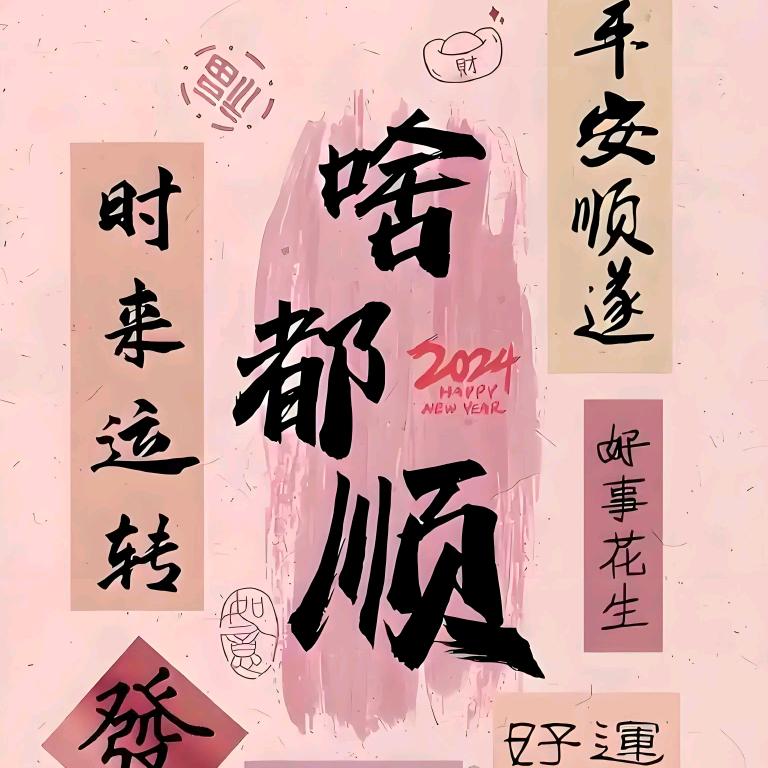 财
福
啥都顺
2024
HAPPY
NEW YEAR
时来运转
平安顺遂
好事花生
如意
發
好運